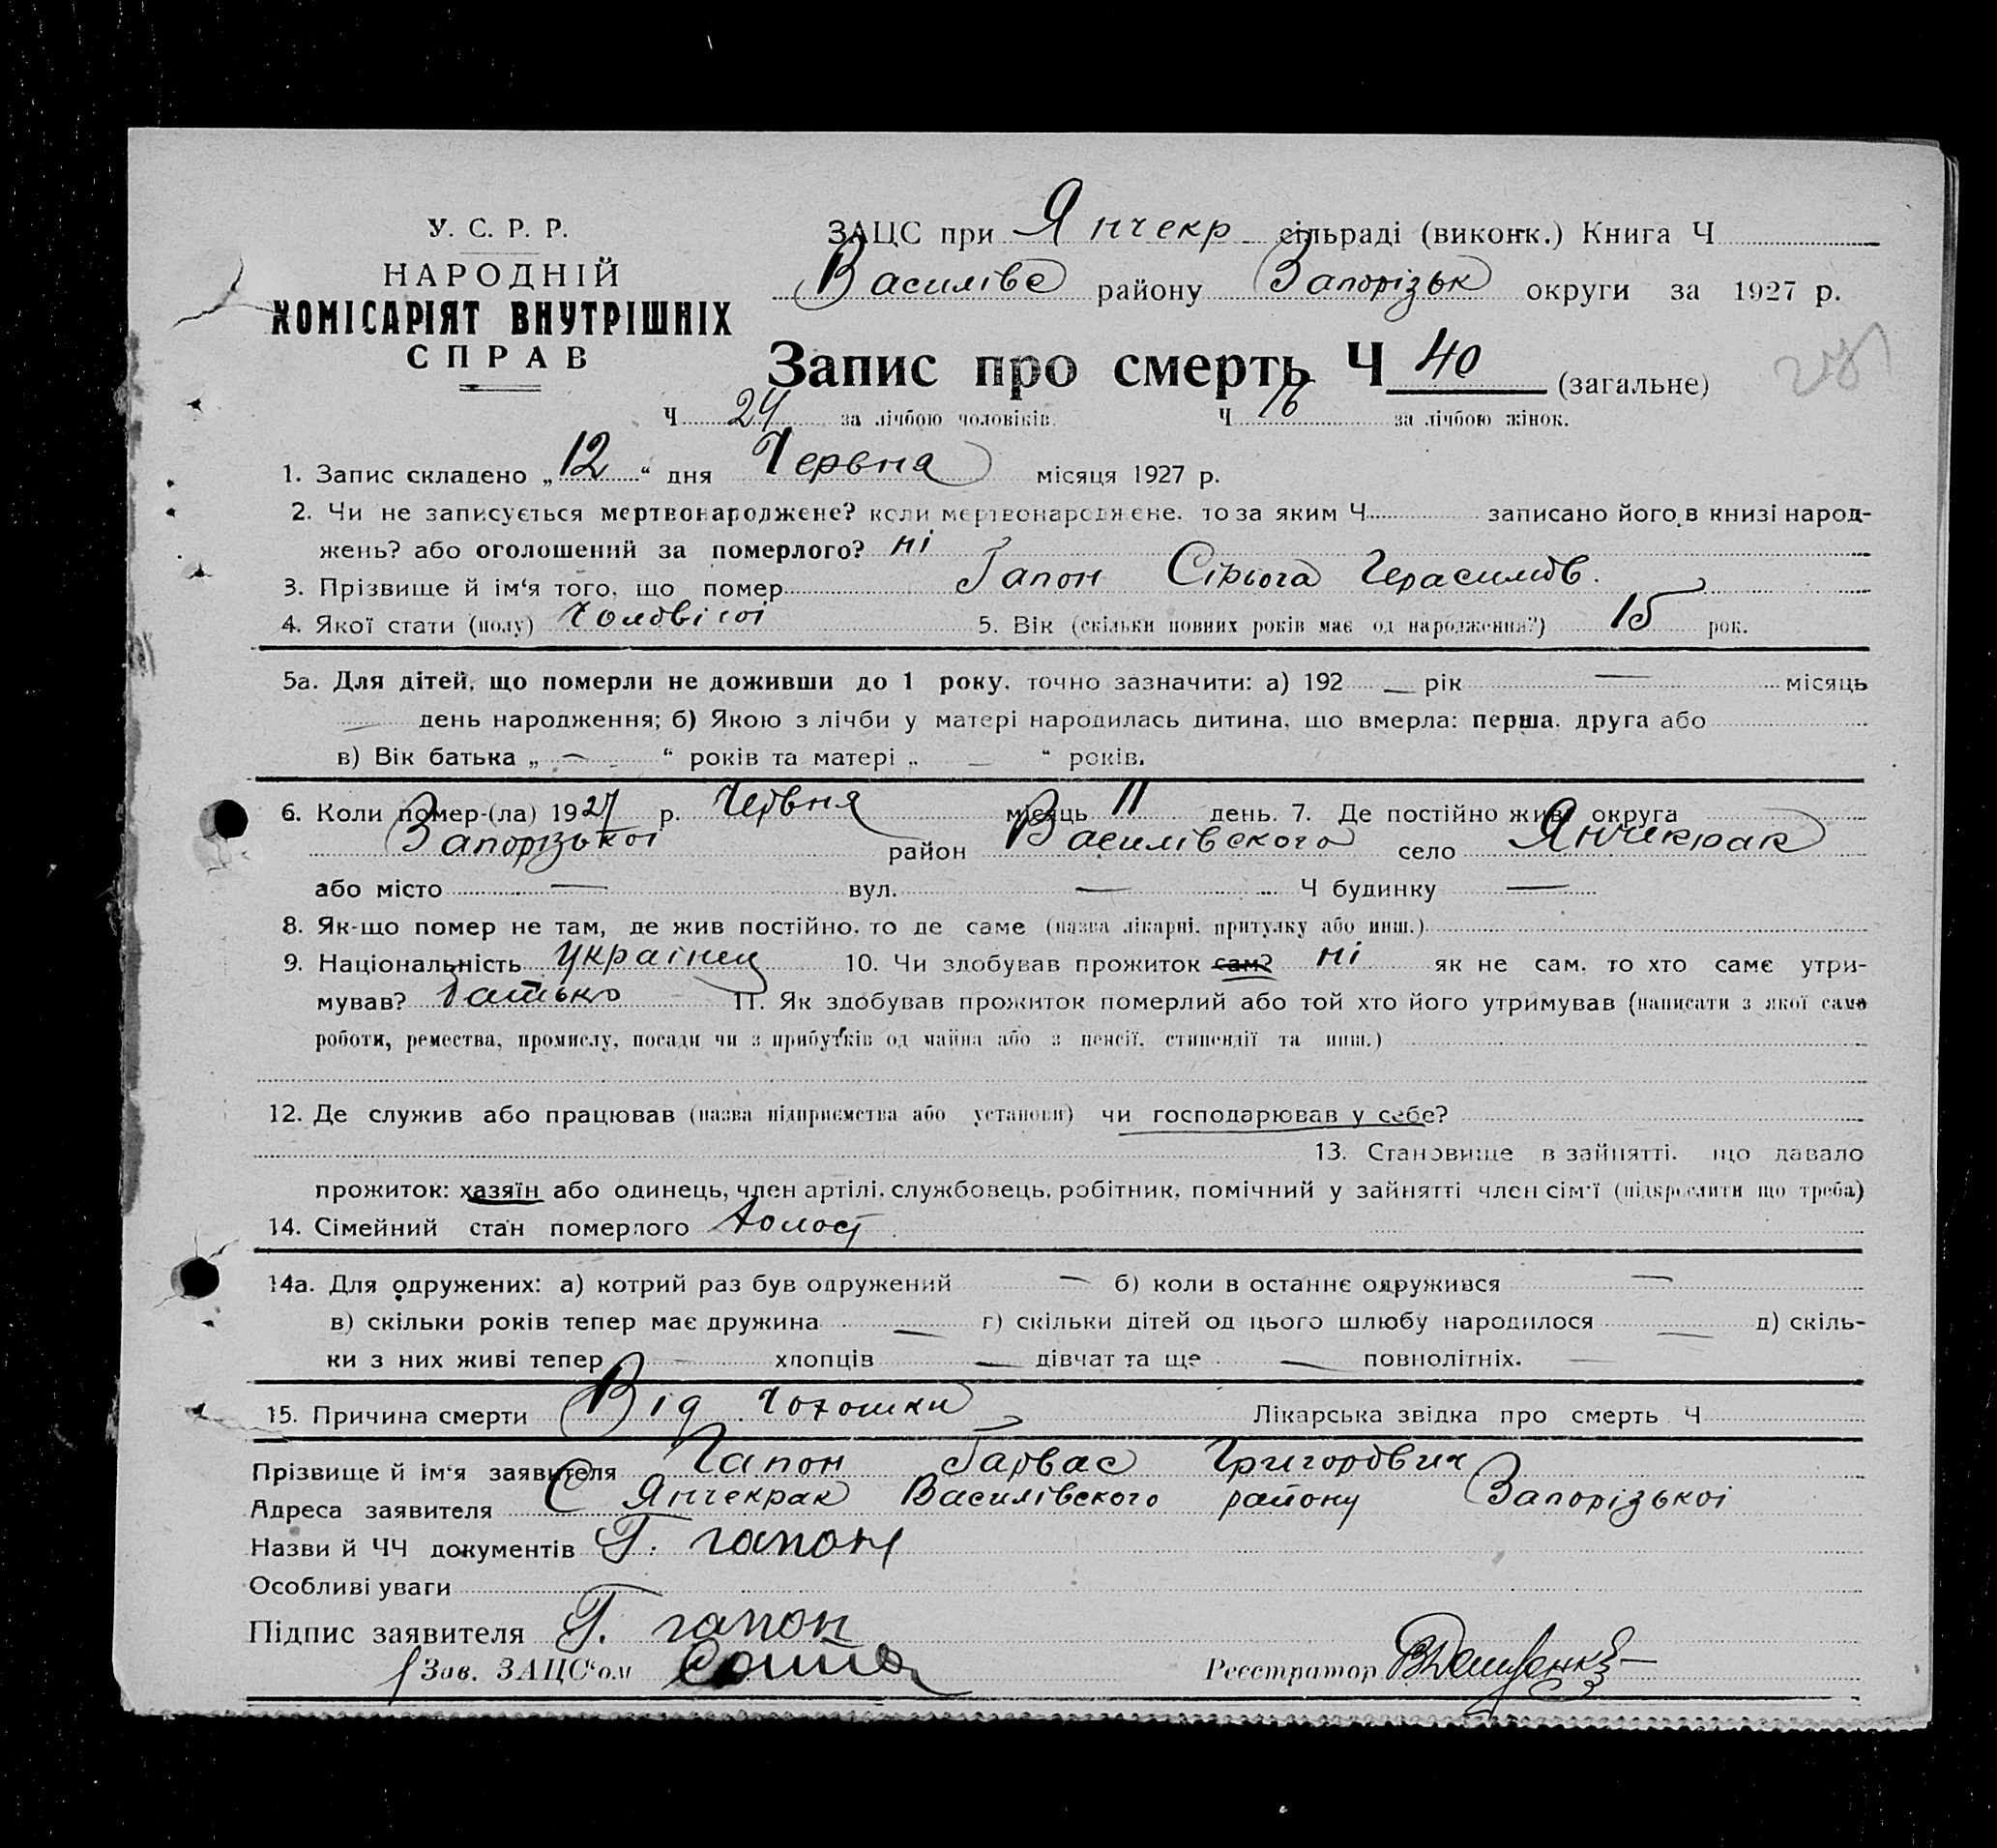 У. С. Р. Р.
НАРОДНІЙ
КОМІСАРІЯТ ВНУТРІШНІХ
СПРАВ
ЗАЦС при Янчекр сільраді (виконк.) Книга Ч
Василівс району Запорізьк округи за 1927 р.
Запис про смерть Ч 40 (загальне)
Ч 24 за лічбою чоловіків. Ч 16 за лічбою жінок.
1. Запис складено „12“ дня Червня місяця 1927 р.
2. Чи не записується мертвонароджене? коли мертвонароджене, то за яким Ч записано його в книзі народ-
жень? або оголошений за померлого? ні
3. Прізвище й ім‘я того, що помер Гапон Сірьога Герасимов.
4. Якої стати (полу) 5. Вік (скільки повних років має од народження?) 15 рок.
5а. Для дітей, що померли не доживши до 1 року, точно зазначити: а) 192 — рік — місяць
— день народження; б) Якою з лічби у матері народилась дитина, що вмерла: перша, друга або
в) Вік батька „ — “ років та матері „ — “ років.
6. Коли помер-(ла) 1927 р. Червня місяць 11 день. 7. Де постійно жив: округа
Запорізької район Василівского село Янчикрак
або місто — вул. — Ч будинку —
8. Як-що помер не там, де жив постійно, то де саме (назва лікарні, притулку або инш.)
9. Національність Українец 10. Чи здобував прожиток сам? ні як не сам, то хто саме утри-
мував? Батько 11. Як здобував прожиток померлий або той хто його утримував (написати з якої саме
роботи, ремества, промислу, посади чи з прибутків од майна або з пенсії, стипендії та инш.)
12. Де служив або працював (назва підприємства або установи) чи господарював у себе?
13. Становище в зайнятті, що давало
прожиток: хазяїн або одинець, член артілі, службовець, робітник, помічний у зайнятті член сім‘ї (підкреслити що треба)
14. Сімейний стан померлого холост
14а. Для одружених: а) котрий раз був одружений — б) коли в останнє одружився —
в) скільки років тепер має дружина — г) скільки дітей од цього шлюбу народилося — д) скіль-
ки з них живі тепер — хлопців — дівчат та ще — повнолітніх. —
15. Причина смерти Від Лікарська звідка про смерть Ч
Прізвище й ім‘я заявителя Гапон Григорович
Адреса заявителя С Янчекрак Василівского району Запорізької
Назви й ЧЧ документів Г. гапон
Особливі уваги
Підпис заявителя Г. гапон
Зав. ЗАЦС‘ом
Реєстратор